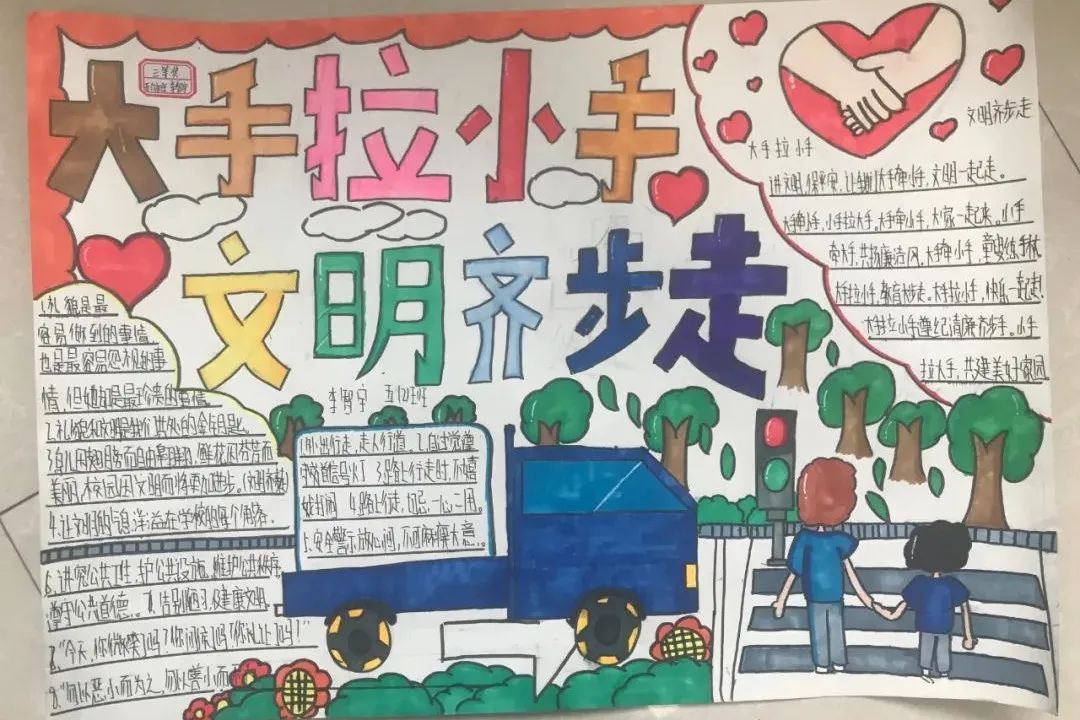 大手拉小手
文明齐步走
李智宁 五(2)班
大手拉小手
文明齐步走
讲文明,保平安,让我们大手牵小手,文明一起走。
大手牵小手,小手拉大手。大手牵小手,大家一起来。小手
牵大手,共扬廉洁风,大手牵小手
大手拉小手,教育大步走。大手拉小手,快乐一起走!
大手拉小手遵纪清廉齐步手。小手
拉大手,共建美好家园
1.礼貌是最
容易做到的事情
也是最容易忽视的事
情,但她却是最珍贵的事情。
2.礼貌和文明是我们共处的金钥匙。
美丽,校园因文明而将更加进步。
4.让文明的气息洋溢在学校的每个角落。
6.讲究公共卫生,护公共设施,维护公共秩序,
遵守公共道德
"今天,你微笑了吗?你问候了吗?你礼让了吗?"
"勿以恶小而为之,勿以善小而
外出行走,走人行道。2.自觉遵
守交通信号灯 3.路上行走时,不嬉
戏打闹 4.路上行走,切忌一心二用。
5.安全警示放心间,不可麻痹大意。